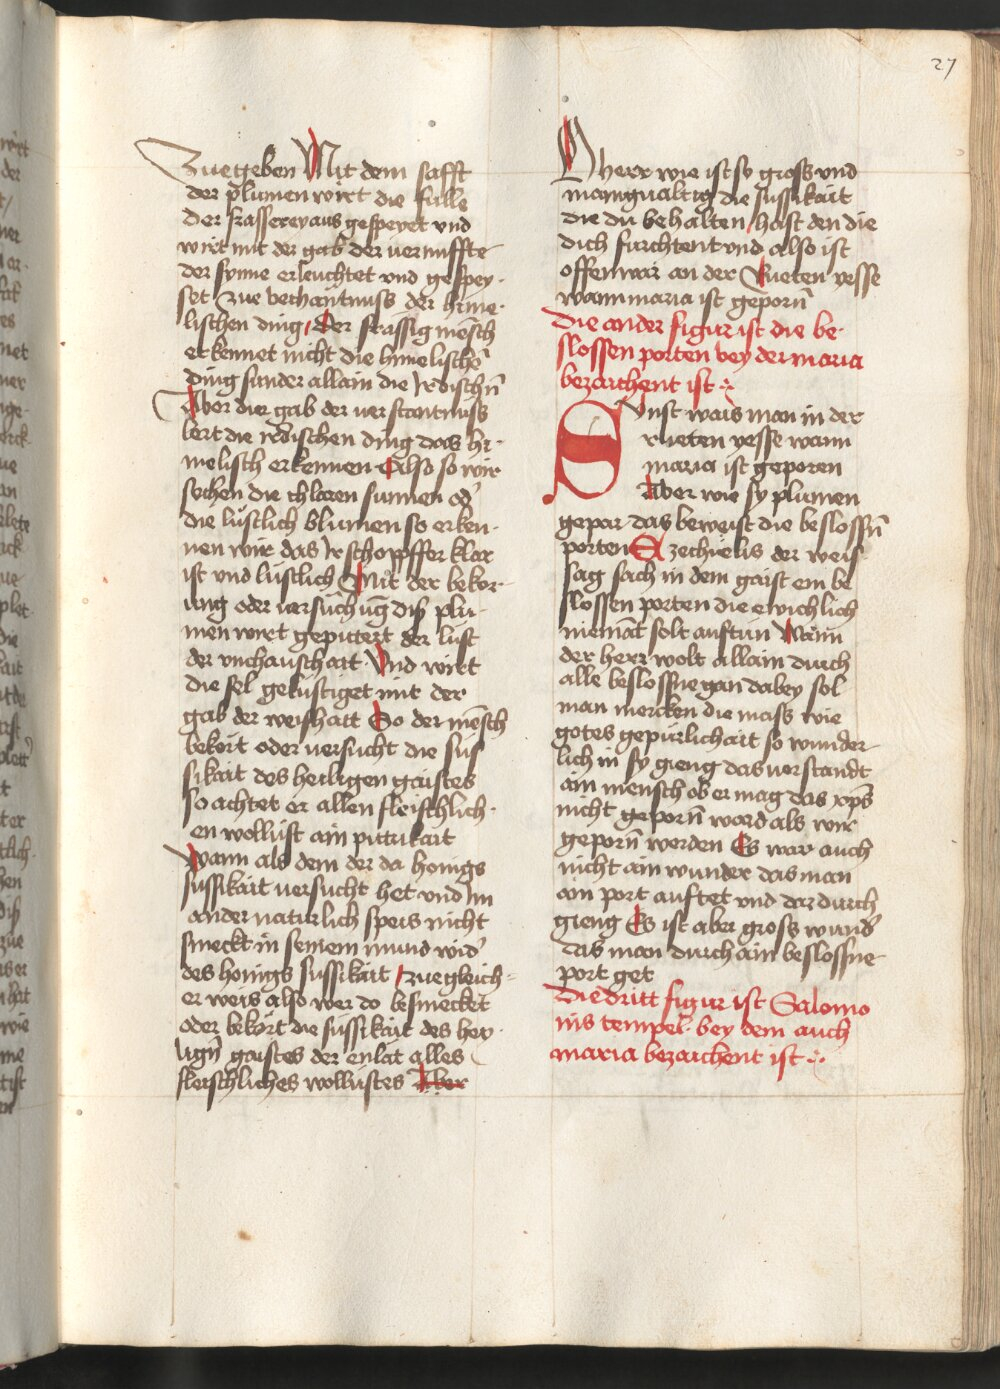 27
Zuegeben Mit dem safft
der plumen wirt die fulle
der frasserey aus gespeyet vnd
wirt mit der gab der vernuffte
der synne erleuchtet vnd gespey-
set Zue bechantnuss der hime-
lischen ding / der frässig mēsch
erkennet nicht die himelischē
ding sunder allain die Irdischn̄
Aber die gab der verstantnuss
lert die irdischen ding das hi-
melisch erkennen Also so wir
sechen die chlaren sunnen od'
die lustlich blumen so erken-
nen wir das Ir schopffer klar
ist vnd lustlich Mit der bekor-
ung oder versuchūg diß plu-
men wirt gepittert der lust
der vnchauschait Vnd wirt
die sel gelustiget mit der
gab der weishait So der mēsch
bekort oder versucht die sus
sikait des heiligen gaistes
so achtet er allen fleischlich-
en wollust ain pittrikait
Wann als dem der da honigs
sussikait versucht het vnd im
ander naturlich speis nicht
smeckt in seinem mund wid'
des honigs sussikait / zue gleich-
er weis also wer do besmecket
oder bekort die sussikait des hei-
lign̄ gaistes der enlat alles
fleischliches wollustes Aber
O herr wie ist so gross vnd
manigualtig die sussikait
die du behalten / hast den die
dich furchtent vnd also ist
offenwar an der Rueten yesse
wann maria ist geporn̄
Die ander figur ist die be-
slossen porten bey der maria
bezaichent ist
Sunst wais man in der
rueten yesse wann
maria ist geporen
Aber wie sy plumen
gepar das beweist die beslossn̄
porten Ezechielis der weis
sag sach in dem gaist ein be
slossen porten die ewichlich
niemāt solt auftun Wann
der herr wolt allain durch
alle beslossne gan dabey sol
man mercken die mass wie
gotes gepurlichait so wunder-
lich in sy gieng das vorstandt
ain mensch ob er mag das xp̄s
nicht geporn̄ ward als wir
geporn̄ werden Es war auch
nicht ain wunder das man
ain port auftet vnd dar durch
gieng Es ist aber gross wund'
das man durch ain beslossne
port get
Die dritt figur ist Salomo
nis tempel bey dem auch
maria bezaichent ist